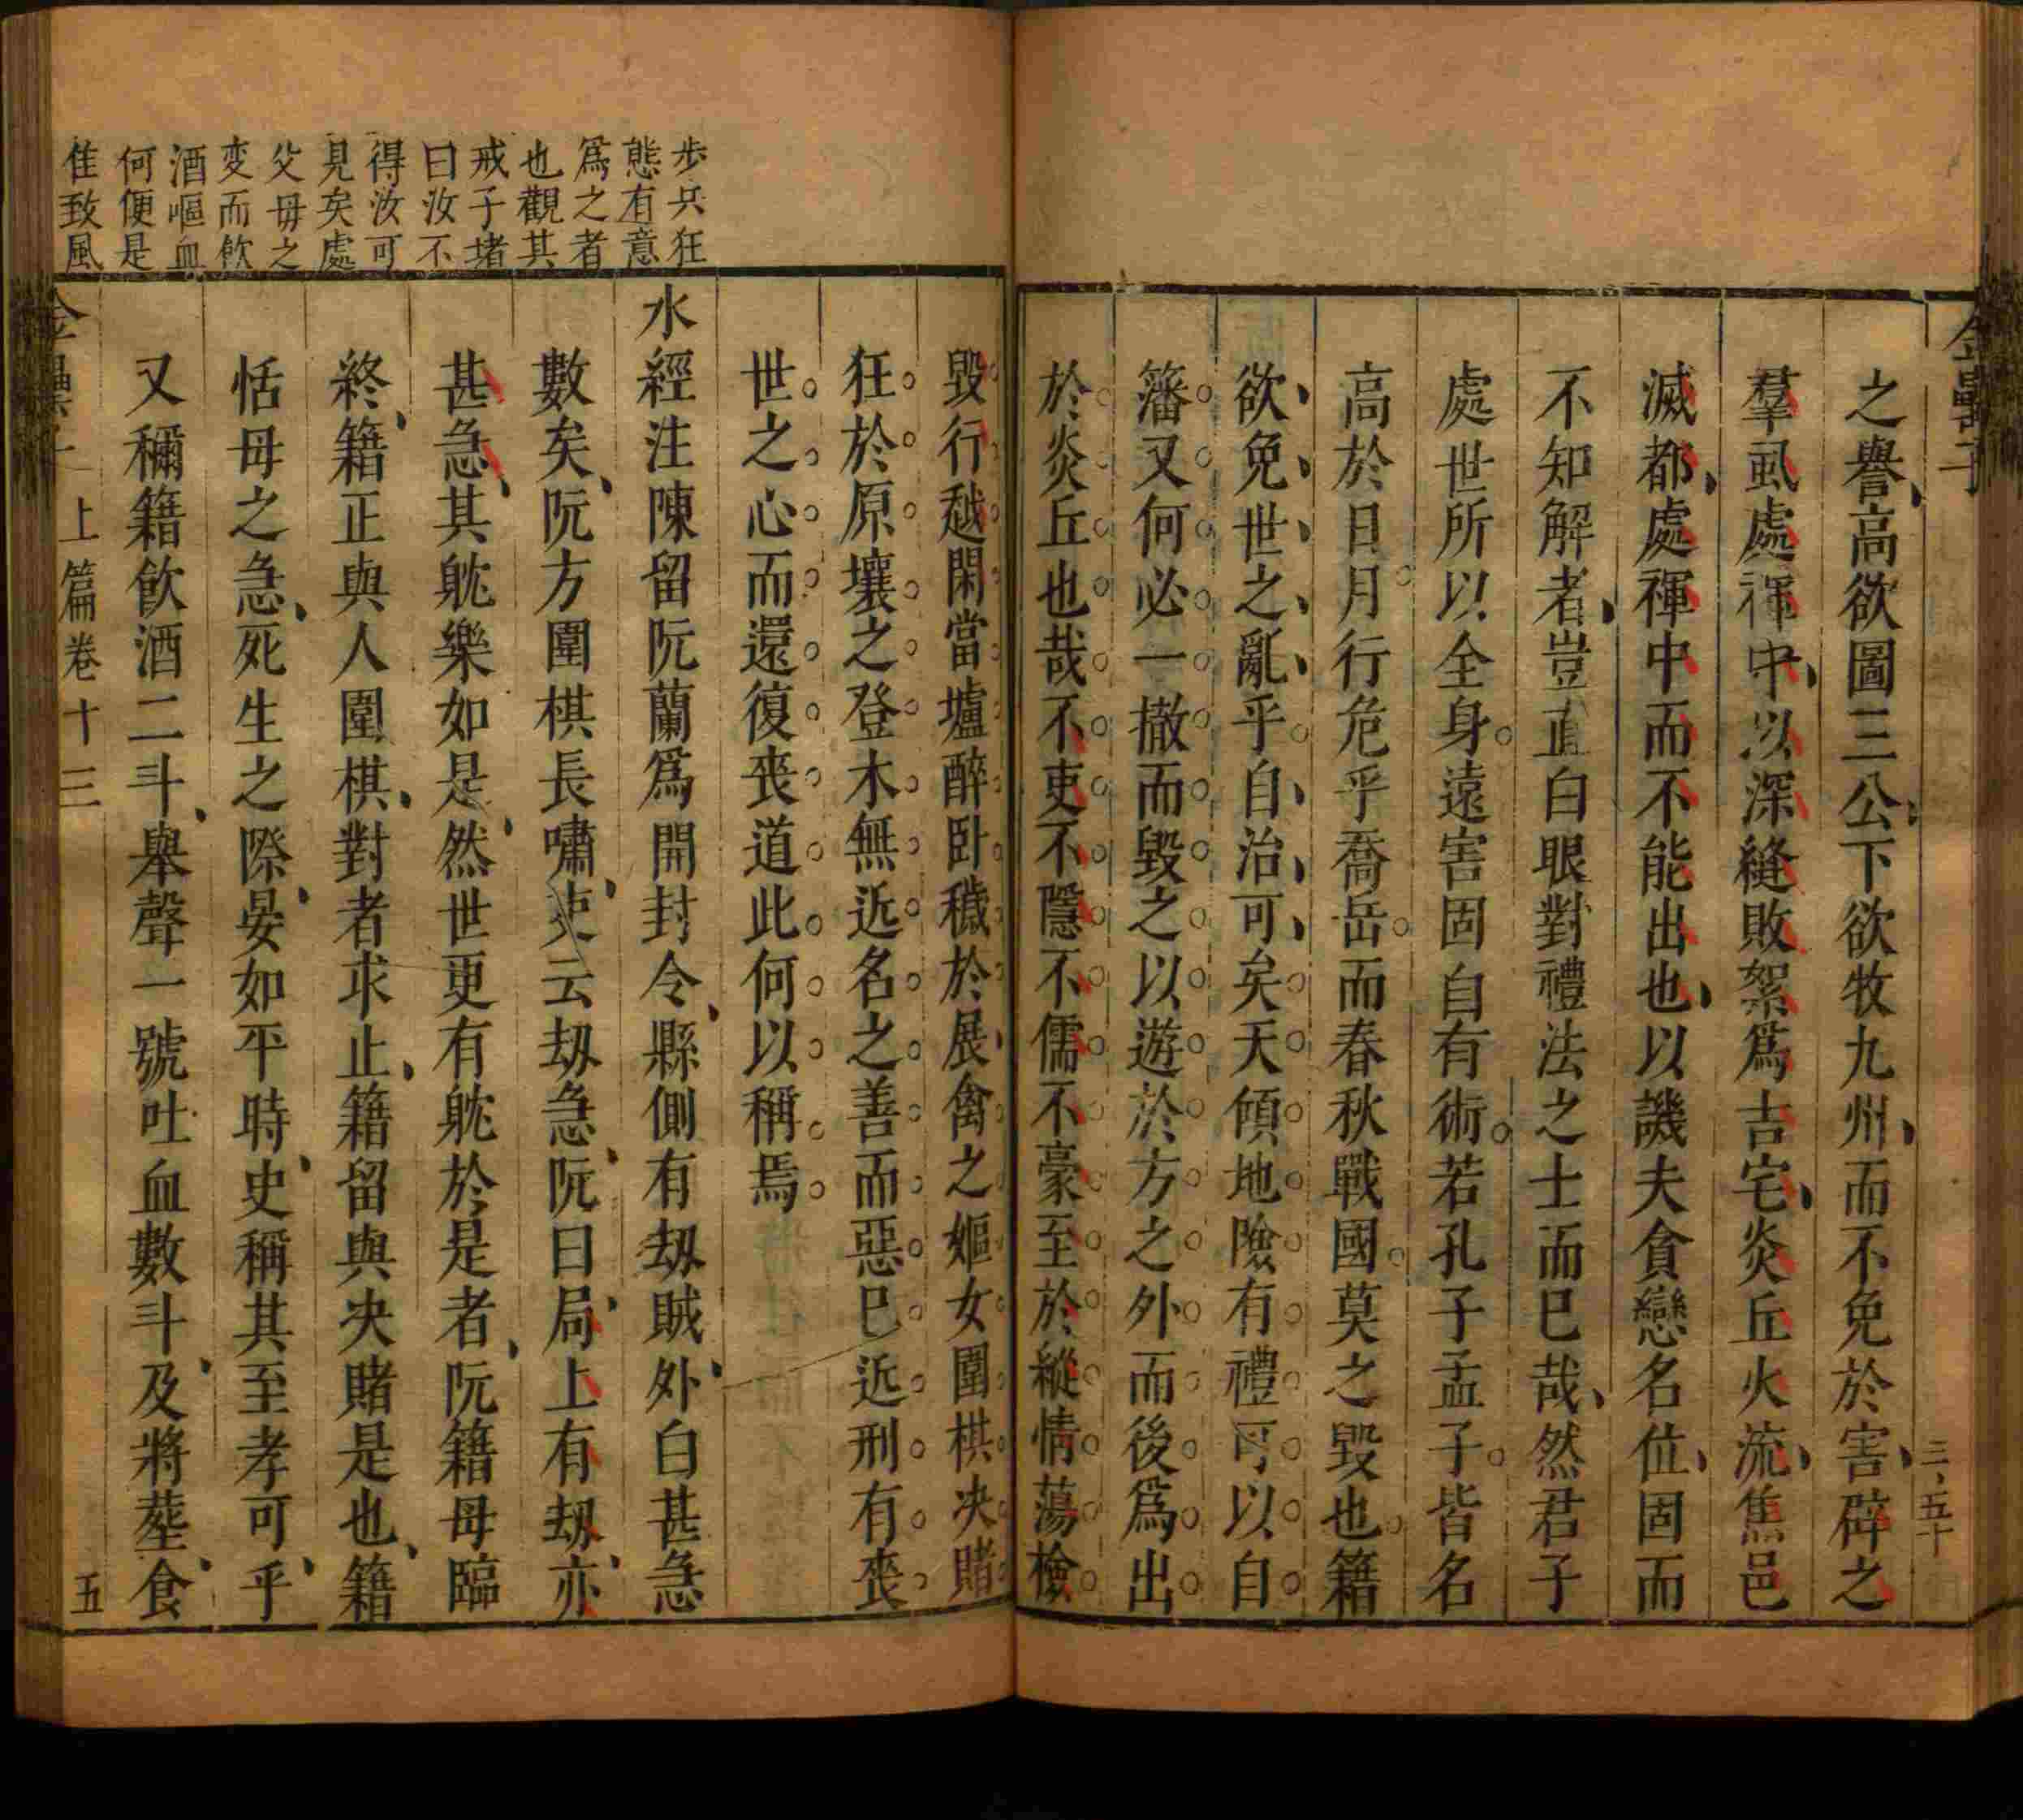 之譽高欲圖三公下欲牧九州而不免於害辟之
羣虱處裈中以深縫敗絮爲吉宅炎丘火流焦邑
滅都處褌中而不能出也以譏夫貪戀名位固而
不知解者豈直白眼對禮法之士而已哉然君子
處世所以全身遠害固自有術若孔子孟子皆名
高於日月行危乎喬岳而春秋戰國莫之毀也籍
欲免世之亂乎自治可矣天傾地險有禮可以自
籓又何必一撤而毀之以遊於方之外而後爲出
於炎丘也哉不吏不隱不儒不豪至於縱情蕩檢
步兵狂
態有意
爲之者
也觀其
戒子堵
曰汝不
得汝可
見矣處
父毋之
変而飲
酒嘔血
何便是
佳致風
毀行越閑當壚醉卧穢於展禽之嫗女圍棋决賭
狂於原壤之登木無近名之善而惡已近刑有喪
世之心而還復喪道此何以稱焉
水經注陳留阮蘭爲開封令縣側有刼賊外白甚急
數矣阮方圍棋長嘯吏云刼急阮曰局上有刼亦
甚急其躭樂如是然世更有躭於是者阮籍母臨
終籍正與人圍棋對者求止籍留與决賭是也籍
恬毋之急死生之際晏如平時史稱其至孝可乎
又稱籍飲酒二斗舉聲一號吐血數斗及將塟食
上篇卷十三
五